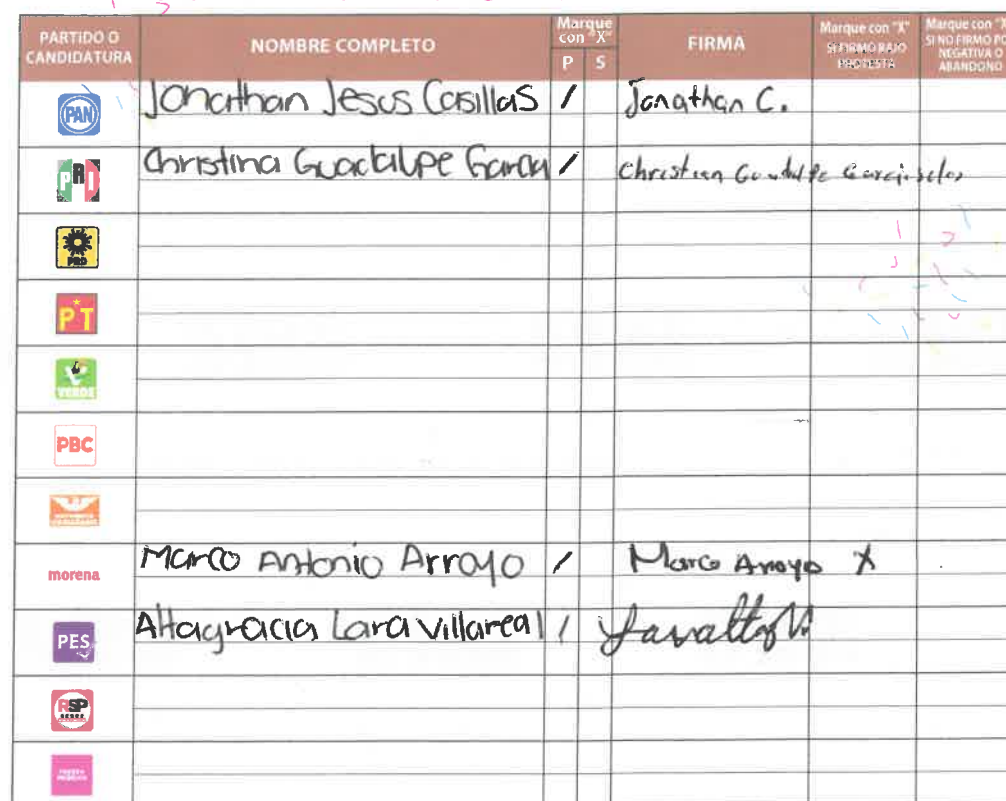 PARTIDO O CANDIDATURA NOMBRE COMPLETO Marque con "X" P S FIRMA Marque con "X" SI FIRMÓ BAJO PROTESTA Marque con "X" SI NO FIRMÓ PO NEGATIVA O ABANDONO
PAN Jonathan Jesus Casillas / Jonathan C.
PRI Christina Guadalupe Garcia / Christian
PRD
PT
VERDE
PBC
morena Marco Antonio Arroyo / Marco Arroyo X
PES Altagracia Lara Villareal /
RSP